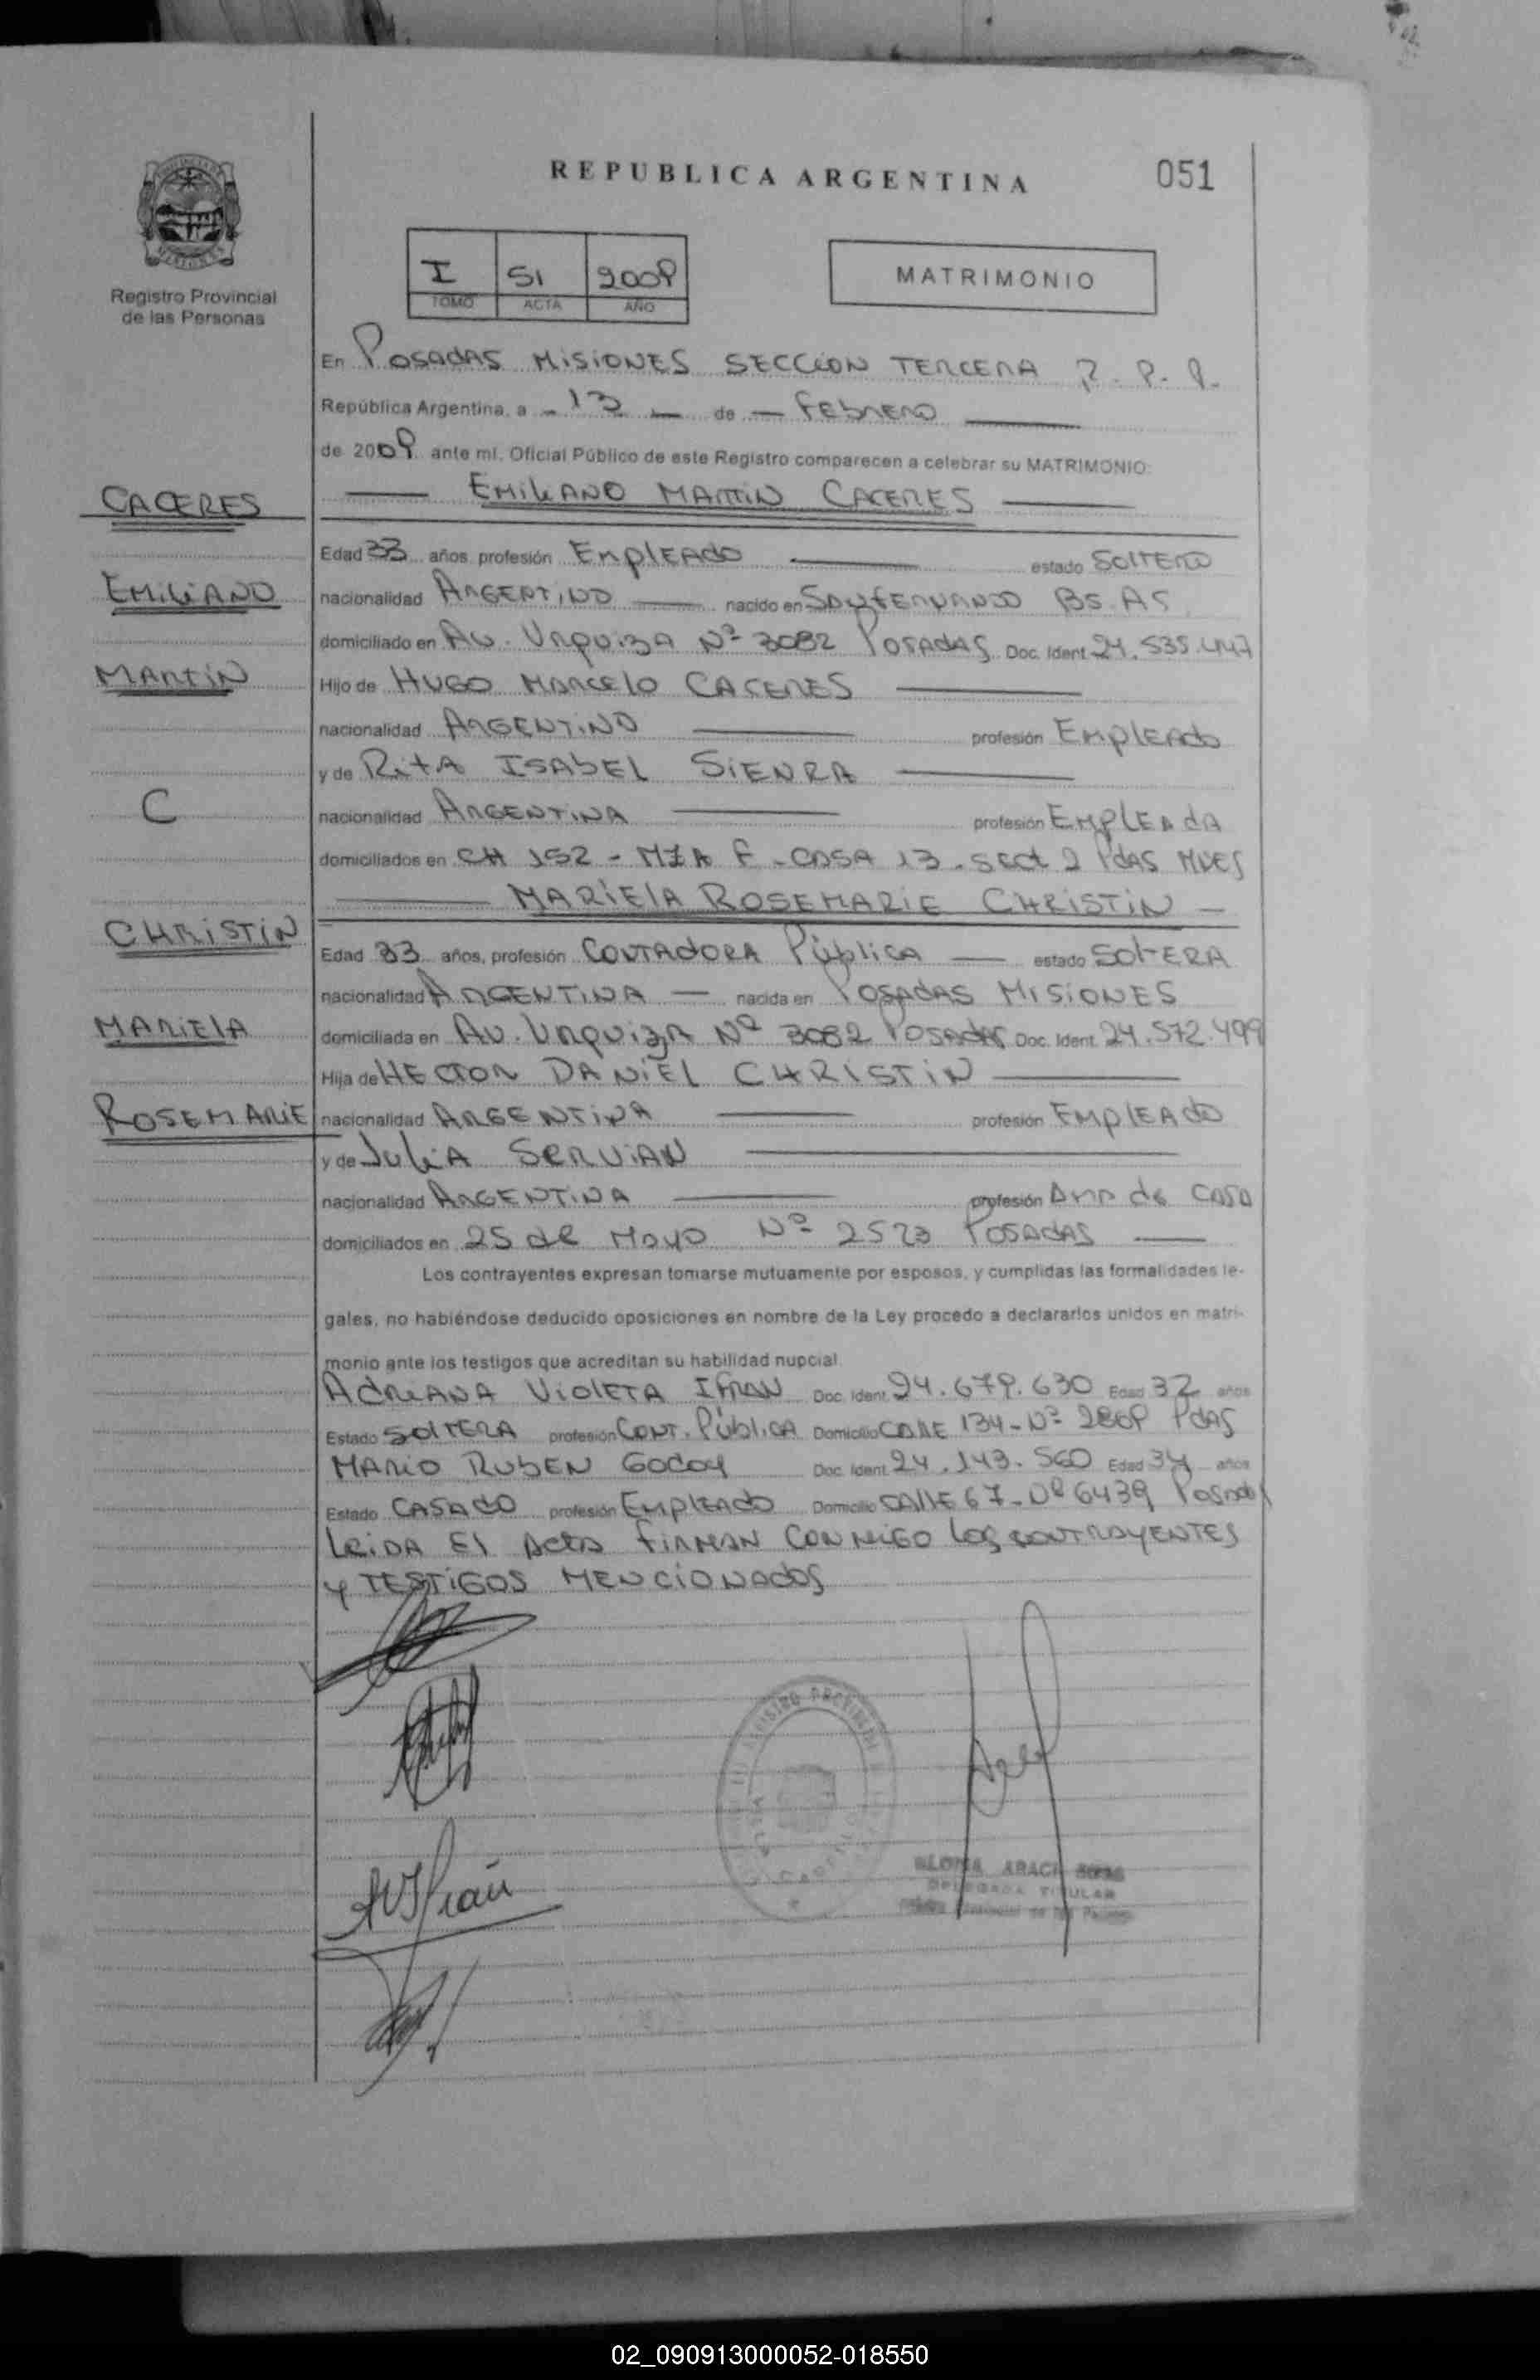 REPUBLICA ARGENTINA
051
Registro Provincial
de las Personas
I 51 2009
TOMO ACTA AÑO
MATRIMONIO
En POSADAS MISIONES SECCION TERCERA R. P. P.
República Argentina, a - 13 - de - FEBRERO
de 2009 ante mi, Oficial Público de este Registro comparecen a celebrar su MATRIMONIO:
EMILIANO MARTIN CACERES
CACERES
Edad 33 años profesión EMPLEADO estado SOLTERO
EMILIANO
nacionalidad ARGENTINO nacido en SAN FERNANDO BS. AS
domiciliado en AV. URQUIZA Nº 3082 POSADAS Doc. Ident 24.535.447
MARTIN
Hijo de HUGO MARCELO CACERES
nacionalidad ARGENTINO profesión EMPLEADO
y de RITA ISABEL SIENRA
C
nacionalidad ARGENTINA profesión EMPLEADA
domiciliados en CH 152 - MZA F - CASA 13 - SECT 2 PDAS MNES
MARIELA ROSEMARIE CHRISTIN -
CHRISTIN
Edad 33 años, profesión CONTADORA PÚBLICA estado SOLTERA
nacionalidad ARGENTINA nacida en POSADAS MISIONES
MARIELA
domiciliada en AV. URQUIZA Nº 3082 POSADAS Doc. Ident. 24.572.499
Hija de HECTOR DANIEL CHRISTIN
ROSEMARIE
nacionalidad ARGENTINA profesión EMPLEADO
y de JULIA SERVIAN
nacionalidad ARGENTINA profesión AMA de CASA
domiciliados en 25 de MAYO Nº 2523 POSADAS
Los contrayentes expresan tomarse mutuamente por esposos, y cumplidas las formalidades le-
gales, no habiéndose deducido oposiciones en nombre de la Ley procedo a declararlos unidos en matri-
monio ante los testigos que acreditan su habilidad nupcial.
ADRIANA VIOLETA IFRAN Doc. Ident. 24.679.630 Edad 32 años
Estado SOLTERA profesión CONT. PÚBLICA Domicilio CALLE 134 - Nº 2869 PDAS
MARIO RUBEN GODOY Doc. Ident. 24.143.560 Edad 34 años
Estado CASADO profesión EMPLEADO Domicilio CALLE 67 - Nº 6439 POSADAS
LEIDA El ACTA FIRMAN CONMIGO LOS CONTRAYENTES
Y TESTIGOS MENCIONADOS
DELEGADA TITULAR
02_090913000052-018550